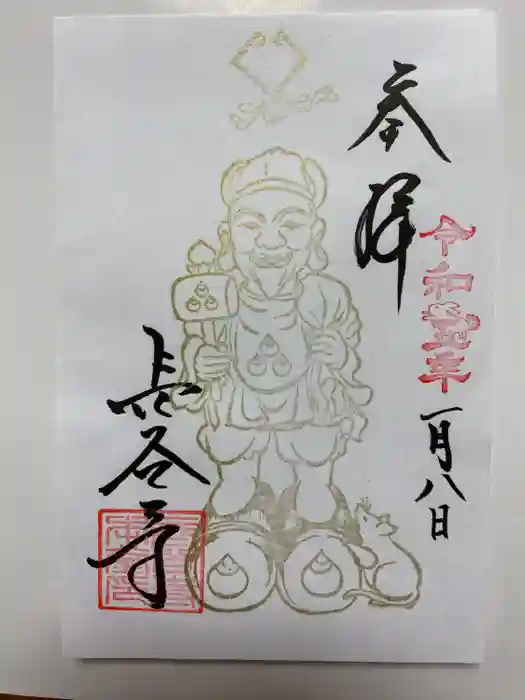 奉拝
令和五年
一月八日
長谷寺